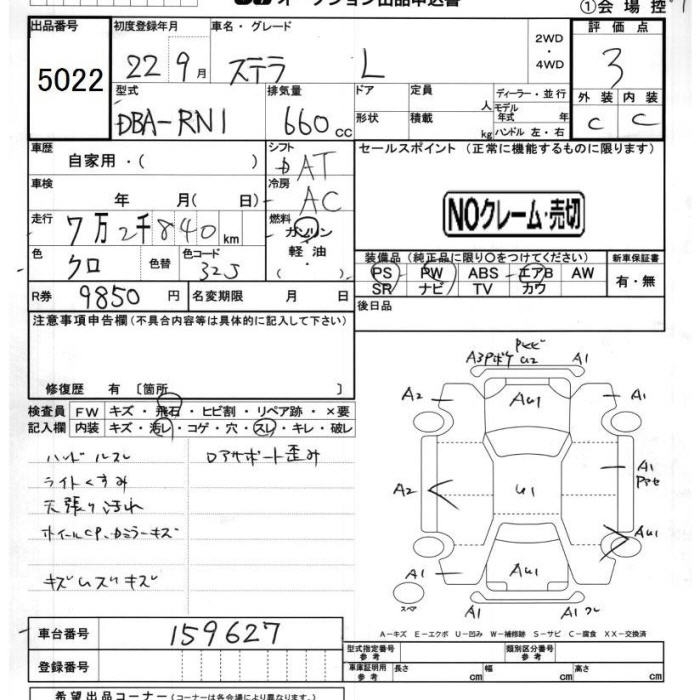 オークション出品申込書
①会場控
出品番号 初度登録年月 車名・グレード 評価点
5022 22 9月 ステラ L 2WD ・ 4WD 3
型式 排気量 ドア 定員 ディーラー・並行 外装 内装
DBA-RN1 660cc 形状 積載 人 kg モデル年式 年 ハンドル 左・右 C C
車歴 自家用・( ) シフト AT セールスポイント(正常に機能するものに限ります)
車検 年 月(日) 冷房 AC
NOクレーム・売切
走行 7万2千840km 燃料 ガソリン 軽油
色 クロ 色替 色コード 32J
装備品(純正品に限り○をつけてください) 新車保証書
PS PW ABS エアB AW 有・無
SR ナビ TV カワ
R券 9850円 名変期限 月 日 後日品
注意事項申告欄(不具合内容等は具体的に記入して下さい)
修復歴 有 〔箇所 〕
検査員 FW キズ・飛石・ヒビ割・リペア跡・×要
記入欄 内装 キズ・汚レ・コゲ・穴・スレ・キレ・破レ
ハンドルスレ ロアサポート歪み
ライトくすみ
天張り汚れ
キズ
A3 U2 A1
A2 AU1 A1
A2 U1 A1
AU1
A1 AU1 A1
スペア A1 A1
A-キズ E-エクボ U-凹み W-補修跡 S-サビ C-腐食 XX-交換済
車台番号 159627
型式指定番号 参考 類別区分番号 参考
登録番号
車庫証明用 参考 長さ cm 幅 cm 高さ cm
希望出品コーナー(コーナーは各会場により異なります。)